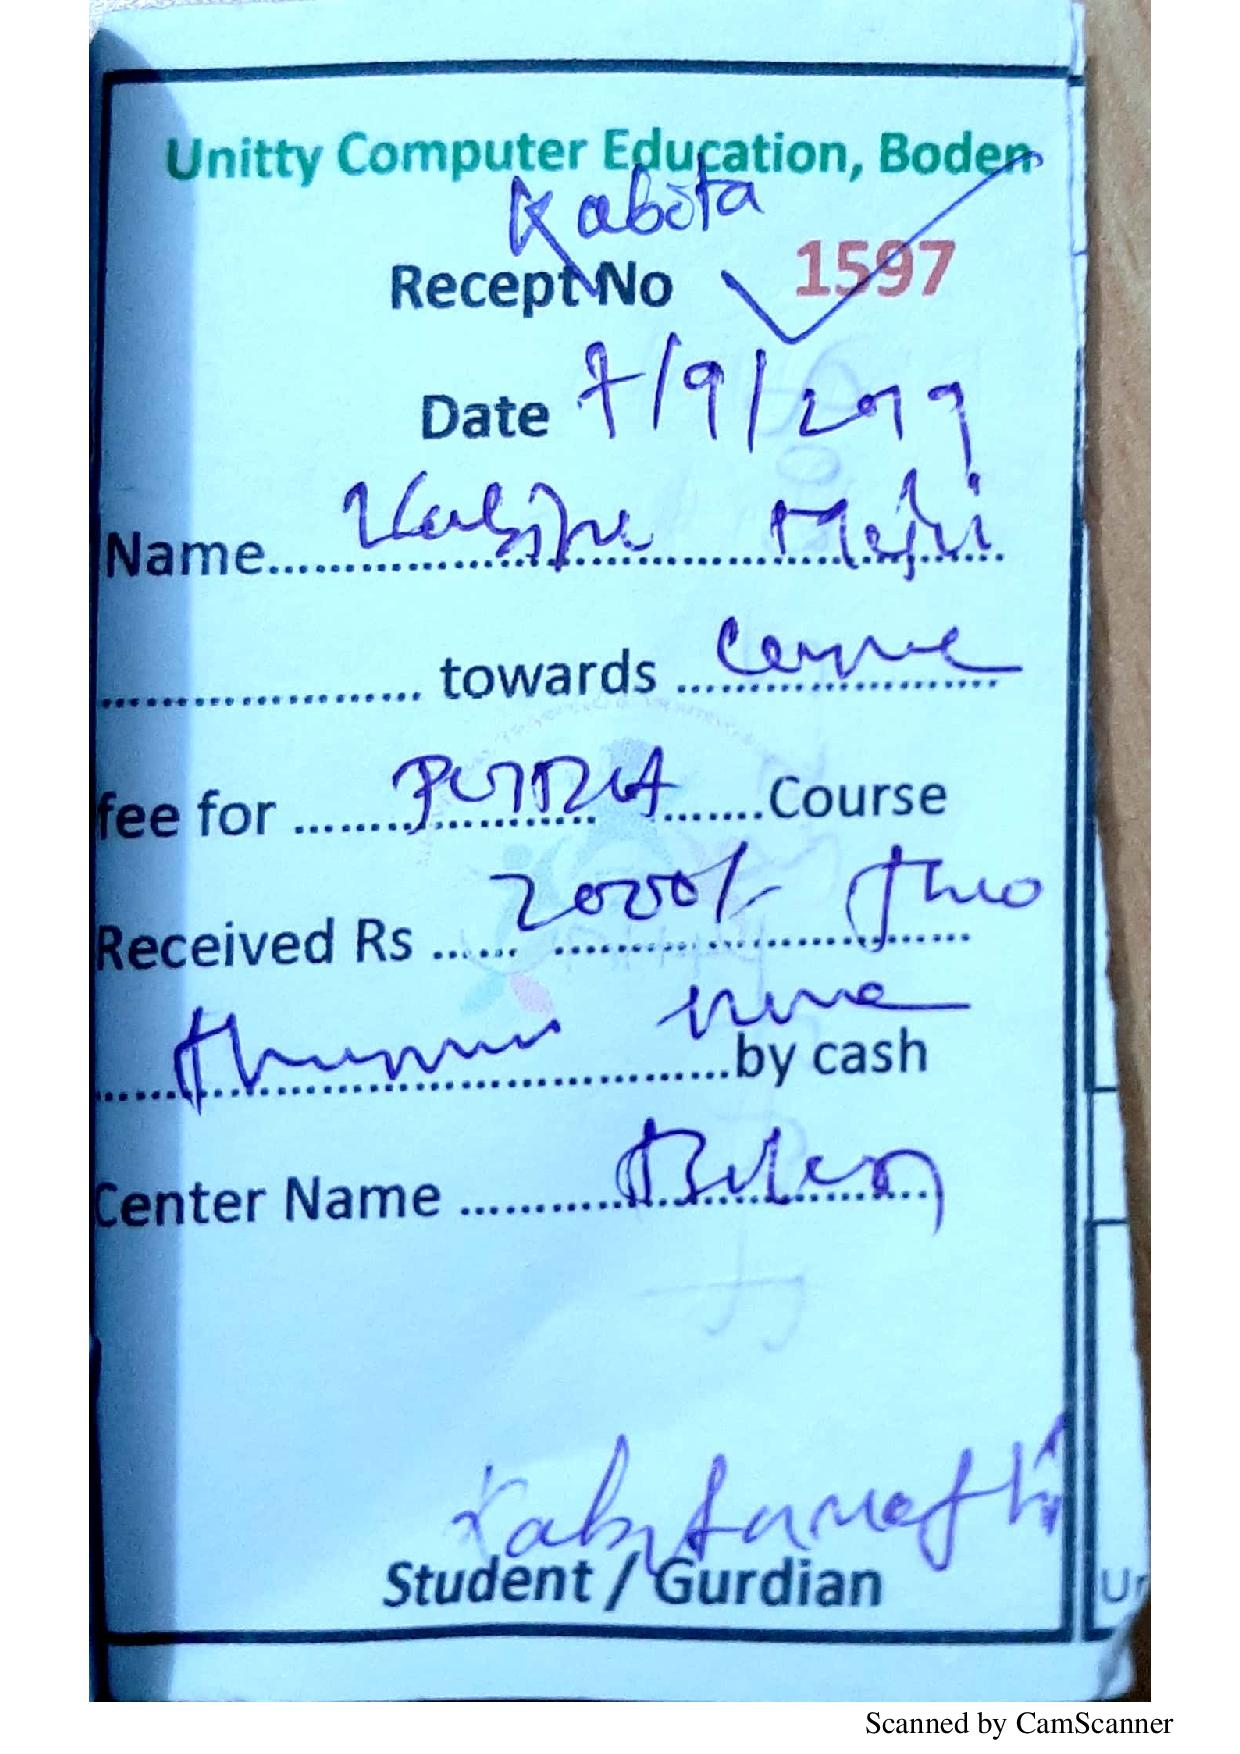 Unitty Computer Education, Boden
Kabita
Recept No 1597
Date 7/9/2019
Name.................................................. Majhi
...................... towards ......................
fee for ...... PGDCA .......Course
Received Rs ...... 2000/- Two
.................................................by cash
Center Name .......... Boden
Student / Gurdian
Ur
Scanned by CamScanner